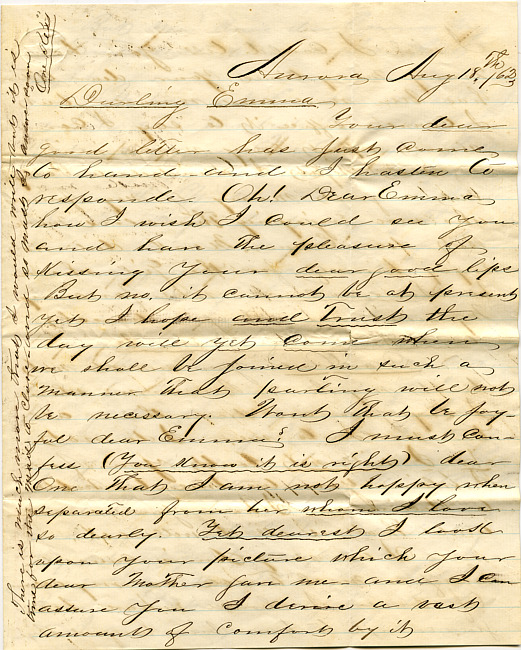 Aurora Aug 18th/63
Darling Emma
Your dear
good letter has just come
to hand and I hasten to
responde. Oh! Dear Emma
how I wish I could see you
and have the pleasure of
Kissing your dear good lips
But no. it cannot be at present
yet I hope and trust the
day will yet come when
we shall be joined in such a
manner that parting will not
be necessary. Wont that be joy-
ful dear Emma? I must con-
fess (You know it is right) dear
One that I am not happy when
separated from her whom I love
so dearly. Yet dearest I look
upon your picture which your
dear Mother gave me and I can
assure you I derive a vast
amount of comfort by it
There is much more that I would write but it is
time for the to close and so must